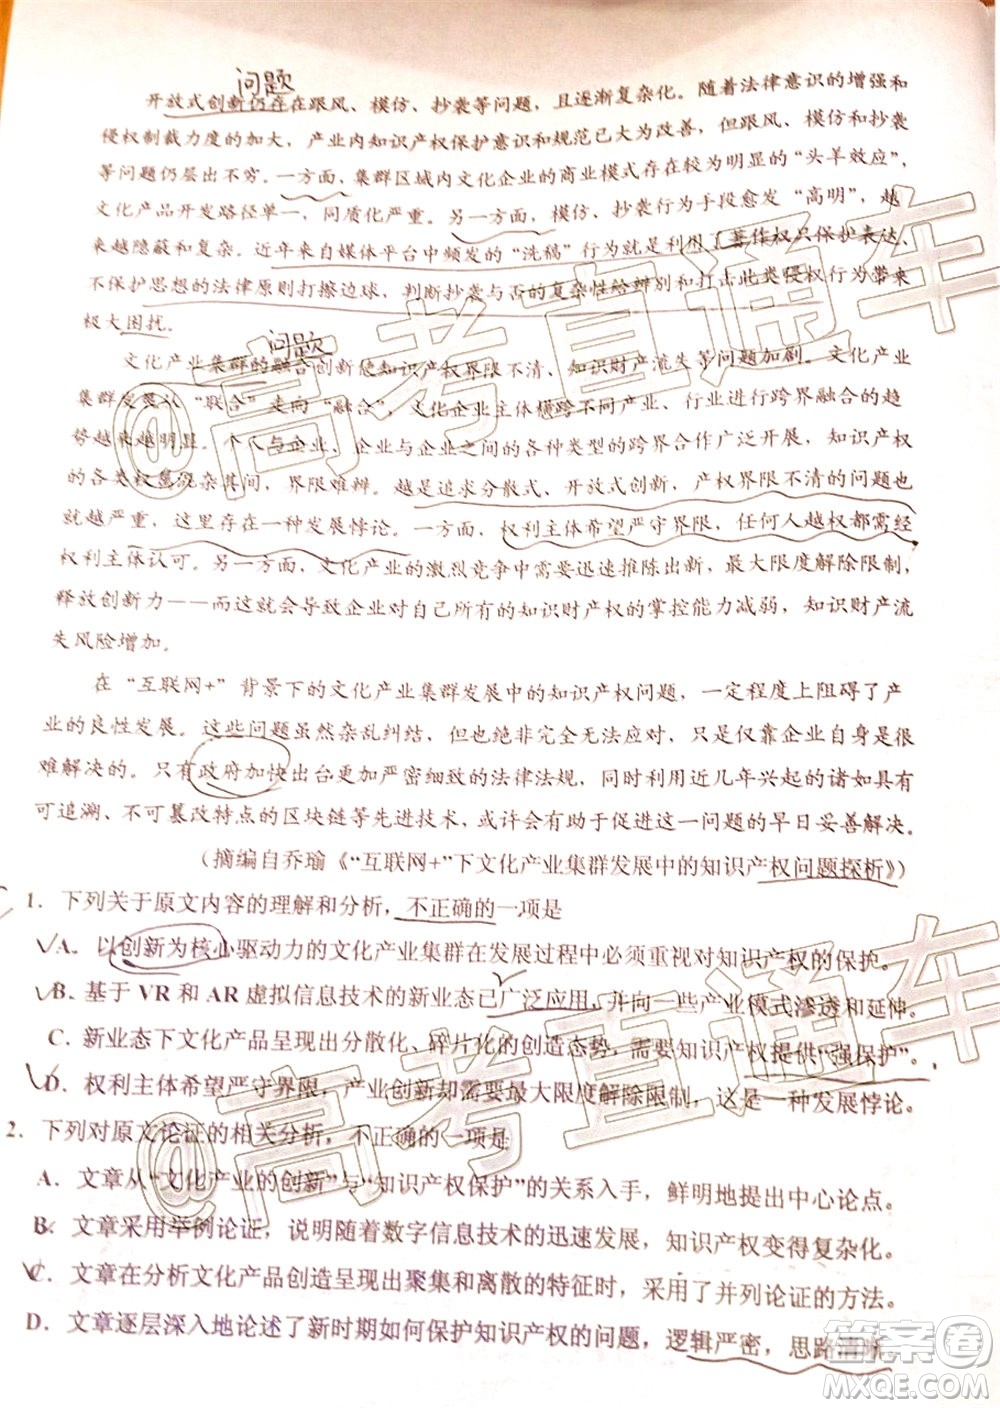 问题
开放式创新仍存在跟风、模仿、抄袭等问题，且逐渐复杂化。随着法律意识的增强和
侵权制裁力度的加大，产业内知识产权保护意识和规范已大为改善，但跟风、模仿和抄袭
等问题仍层出不穷。一方面，集群区域内文化企业的商业模式存在较为明显的“头羊效应”，
文化产品开发路径单一，同质化严重。另一方面，模仿、抄袭行为手段愈发“高明”，越
来越隐蔽和复杂。近年来自媒体平台中频发的“洗稿”行为就是利用了著作权只保护表达、
不保护思想的法律原则打擦边球，判断抄袭与否的复杂性给辨别和打击此类侵权行为带来
极大困扰。
问题
文化产业集群的融合创新使知识产权界限不清、知识财产流失等问题加剧。文化产业
集群发展从“联合”走向“融合”，文化企业主体横跨不同产业、行业进行跨界融合的趋
势越来越明显。个人与企业、企业与企业之间的各种类型的跨界合作广泛开展，知识产权
的各类权属混杂其间，界限难辨。越是追求分散式、开放式创新，产权界限不清的问题也
就越严重，这里存在一种发展悖论。一方面，权利主体希望严守界限，任何人越权都需经
权利主体认可。另一方面，文化产业的激烈竞争中需要迅速推陈出新，最大限度解除限制，
释放创新力——而这就会导致企业对自己所有的知识财产权的掌控能力减弱，知识财产流
失风险增加。
在“互联网+”背景下的文化产业集群发展中的知识产权问题，一定程度上阻碍了产
业的良性发展。这些问题虽然杂乱纠结，但也绝非完全无法应对，只是仅靠企业自身是很
难解决的。只有政府加快出台更加严密细致的法律法规，同时利用近几年兴起的诸如具有
可追溯、不可篡改特点的区块链等先进技术，或许会有助于促进这一问题的早日妥善解决。
（摘编自乔瑜《“互联网+”下文化产业集群发展中的知识产权问题探析》）
1．下列关于原文内容的理解和分析，不正确的一项是
A．以创新为核心驱动力的文化产业集群在发展过程中必须重视对知识产权的保护。
B．基于 VR 和 AR 虚拟信息技术的新业态已广泛应用，并向一些产业模式渗透和延伸。
C．新业态下文化产品呈现出分散化、碎片化的创造态势，需要知识产权提供“强保护”。
D．权利主体希望严守界限，产业创新却需要最大限度解除限制，这是一种发展悖论。
2．下列对原文论证的相关分析，不正确的一项是
A．文章从“文化产业的创新”与“知识产权保护”的关系入手，鲜明地提出中心论点。
B．文章采用举例论证，说明随着数字信息技术的迅速发展，知识产权变得复杂化。
C．文章在分析文化产品创造呈现出聚集和离散的特征时，采用了并列论证的方法。
D．文章逐层深入地论述了新时期如何保护知识产权的问题，逻辑严密，思路清晰。
@高考直通车
@高考直通车
答案圈
MXQE.COM